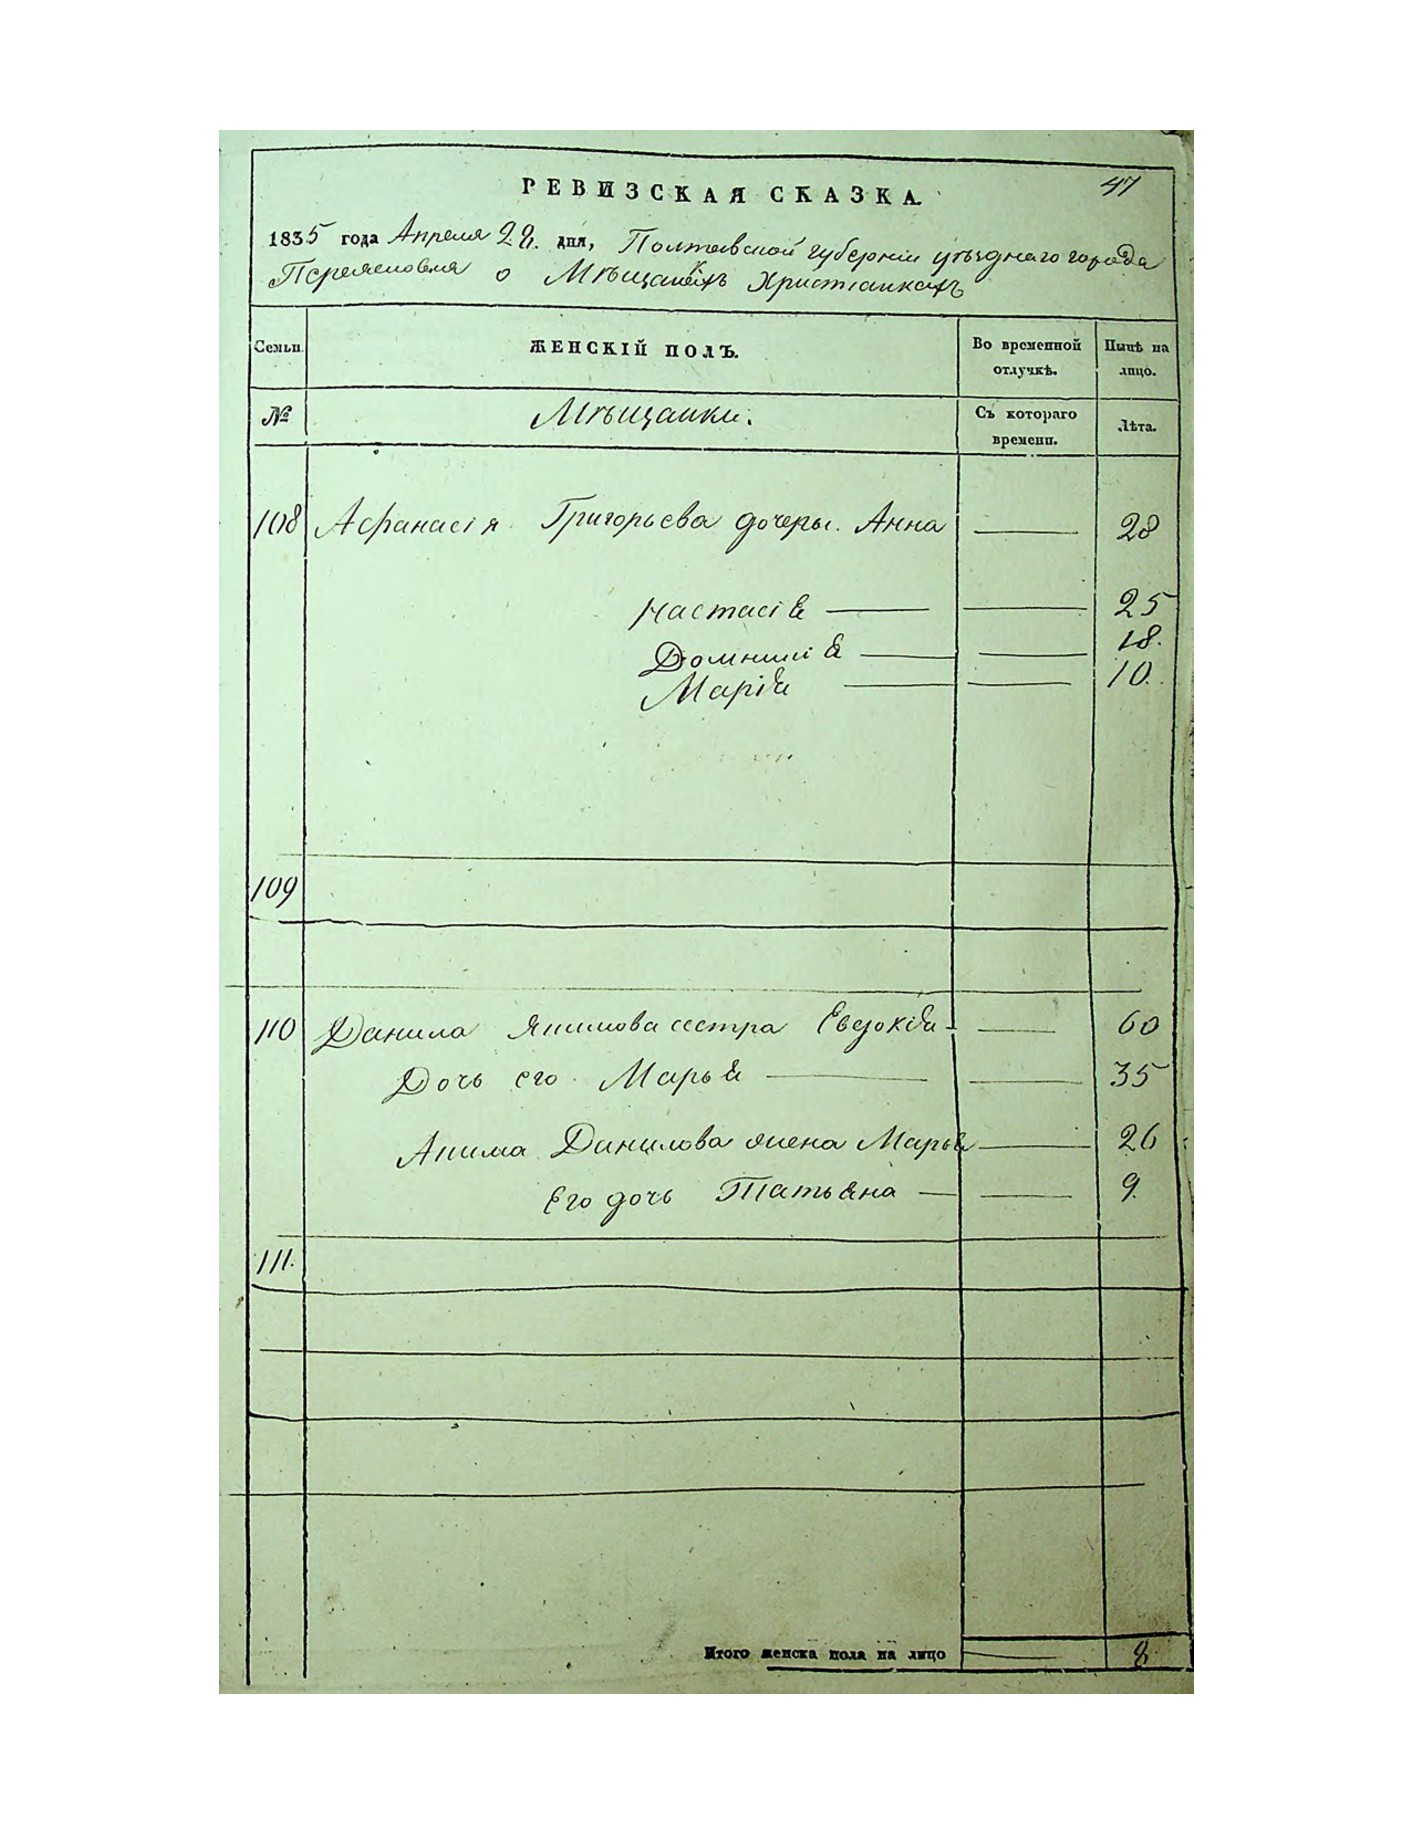 47
РЕВИЗСКАЯ СКАЗКА.
1835 года Апреля 28. дня, Полтавской губерніи уѣзднаго города
Переяслова о Мѣщанкахъ Христіанкахъ
Семьи. ЖЕНСКІЙ ПОЛЪ. Во временной отлучкѣ. Нынѣ на лицо.
№ Мѣщанки. Съ котораго времени. Лѣта.
108 Афанасія Григорьева дочеры. Анна — 28
Настасія — — 25
Домникія — — 18.
Марія — — 10.
109
110 Данила Якимова сестра Евдокія — — 60
Дочь его Марья — — 35
Акима Данилова жена Марья — 26
Его дочь Татьяна — — 9.
111.
Итого женска пола на лицо — 8